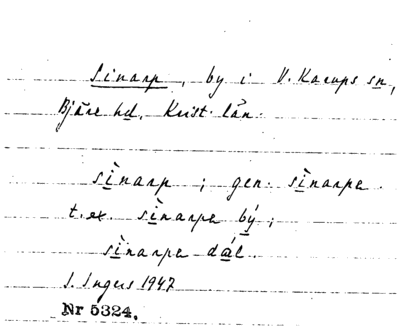 Sinarp, by i V. Karups sn,
Bjäre hd. Krist. län.
sìnarp ; gen. sìnarpa
t. ex. sìnarpa bý ;
sìnarpa dál.
I. Ingers 1947
Nr 5324.